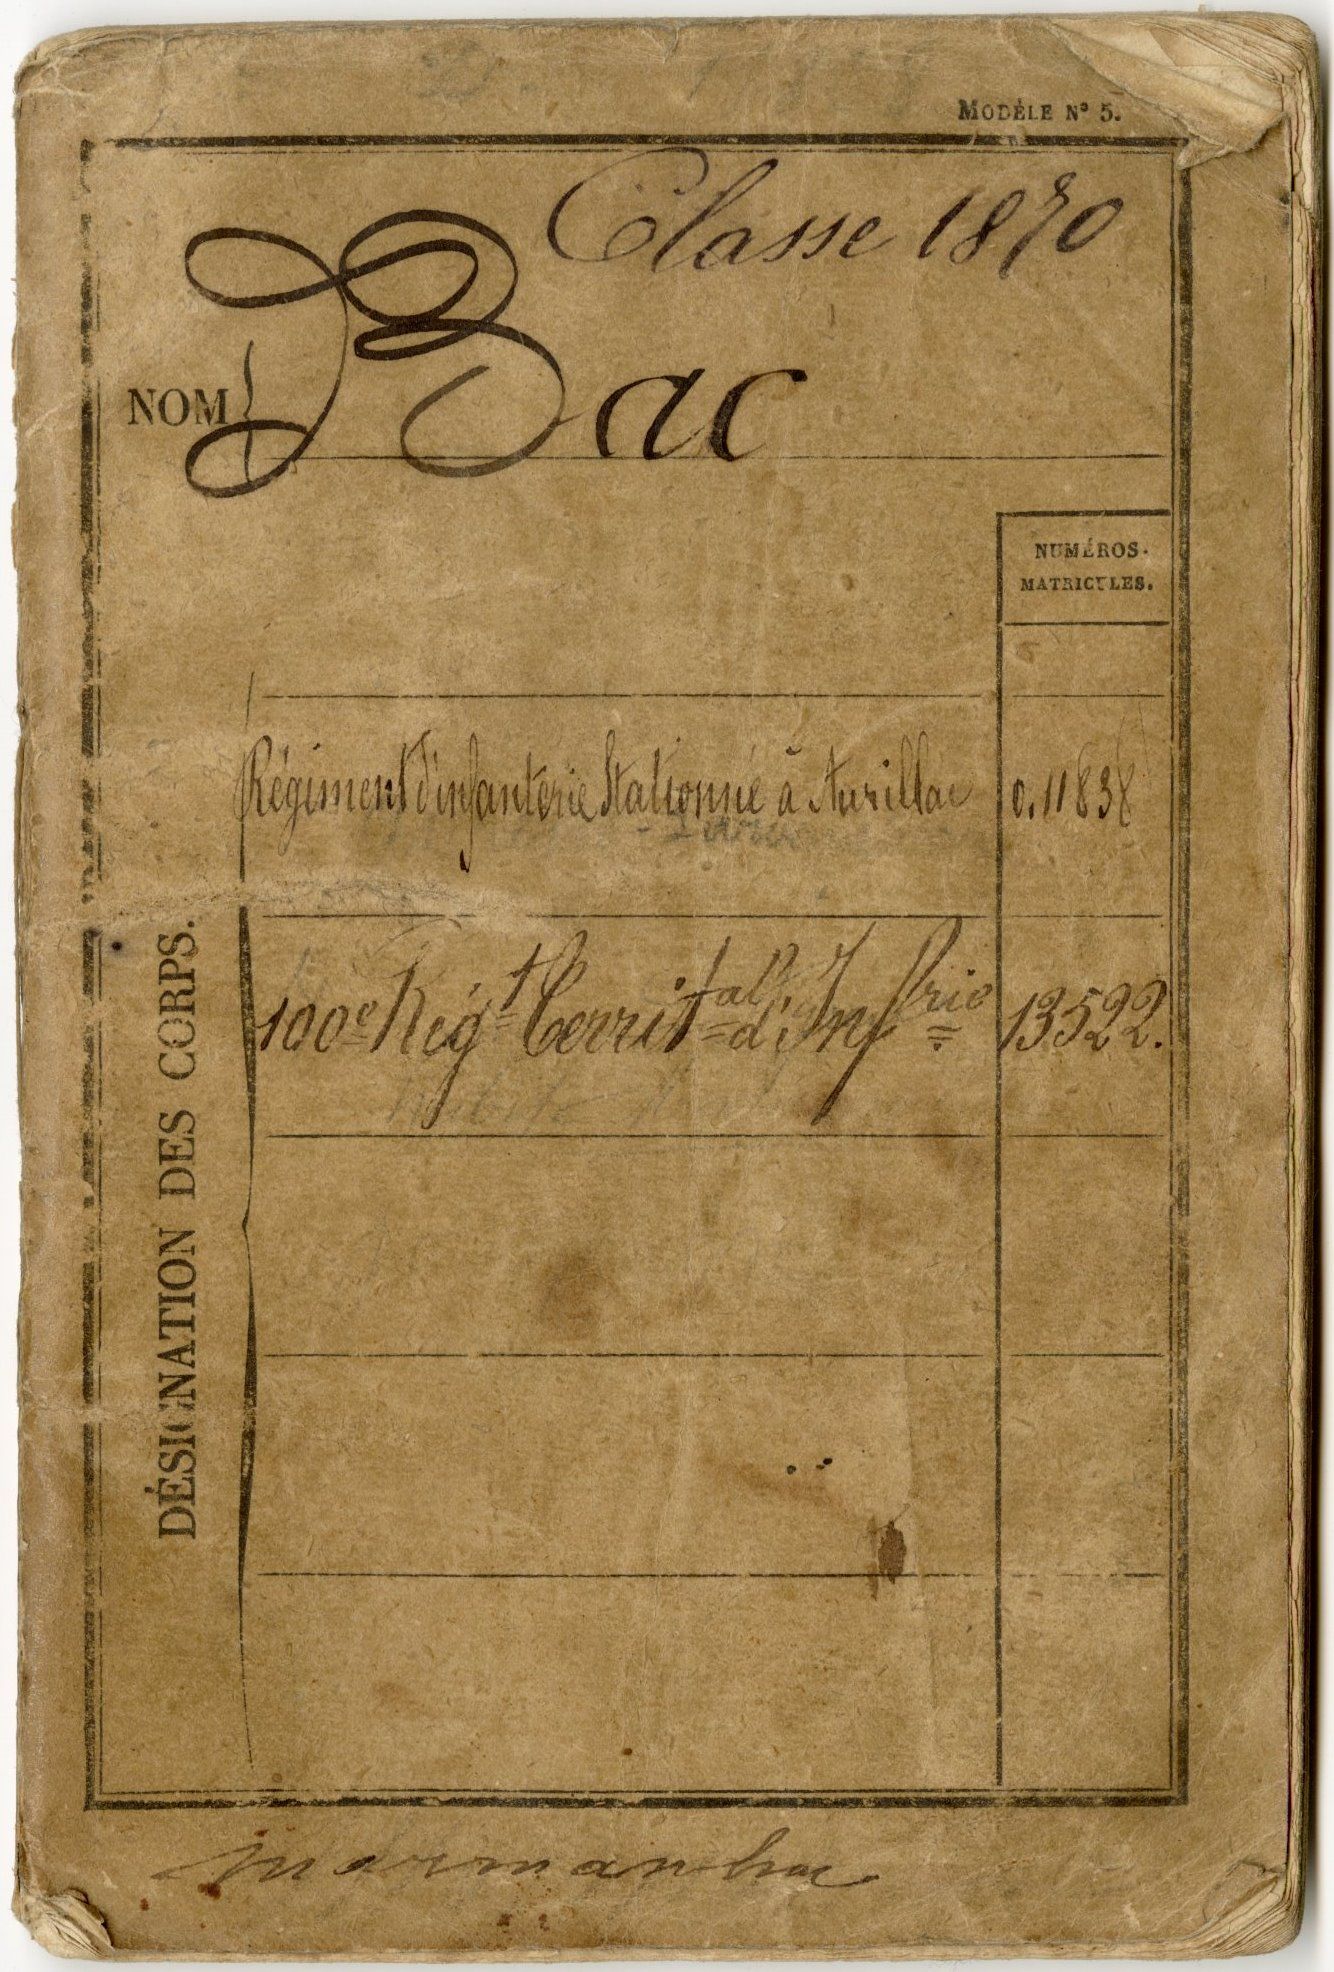 MODÈLE Nº 5.
Classe 1870
NOM
Bac
NUMÉROS
MATRICULES.
Régiment d'infanterie Stationné à Aurillac 0.11838
100e Régt Territal d'Infrie 13522.
DÉSIGNATION DES CORPS.
Marmanhac